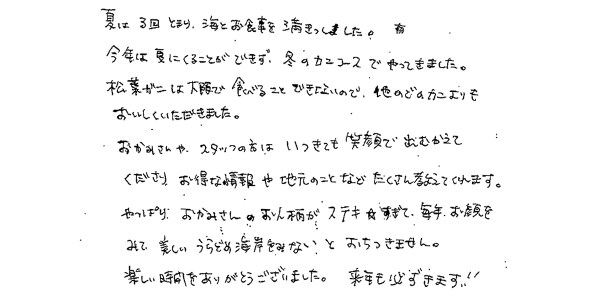 夏は3回とまり、海とお食事を満きつしました。
今年は夏にくることができず、冬のカニコースでやってきました。
松葉ガニは大阪で食べることできないので、他のどのカニよりも
おいしくいただきました。
おかみさんや、スタッフの方は いつきても 笑顔で出むかえて
くださり お得な情報や地元のことなど たくさん教えてくれます。
やっぱり おかみさんのお人柄が ステキ☆すぎて、毎年、お顔を
みて 美しい うらどめ海岸をみない と おちつきません。
楽しい時間をありがとうございました。 来年も必ずきます!!